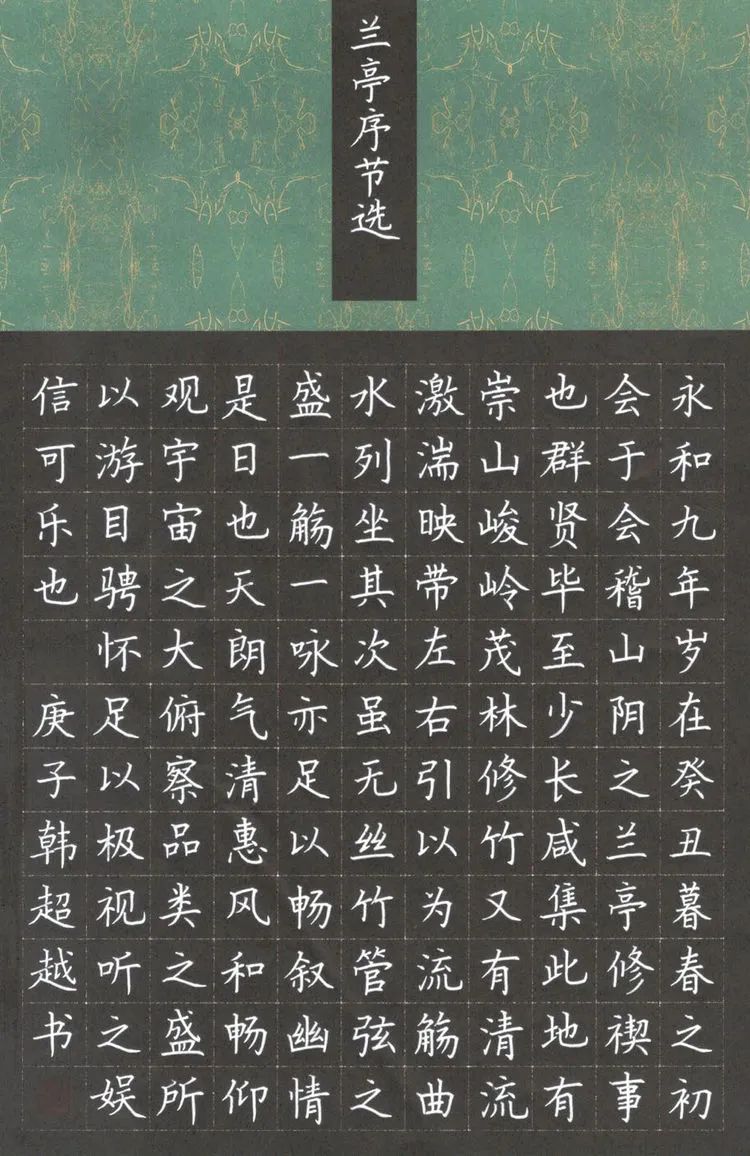 兰亭序节选
永和九年岁在癸丑暮春之初
会于会稽山阴之兰亭修禊事
也群贤毕至少长咸集此地有
崇山峻岭茂林修竹又有清流
激湍映带左右引以为流觞曲
水列坐其次虽无丝竹管弦之
盛一觞一咏亦足以畅叙幽情
是日也天朗气清惠风和畅仰
观宇宙之大俯察品类之盛所
以游目骋怀足以极视听之娱
信可乐也 庚子韩超越书